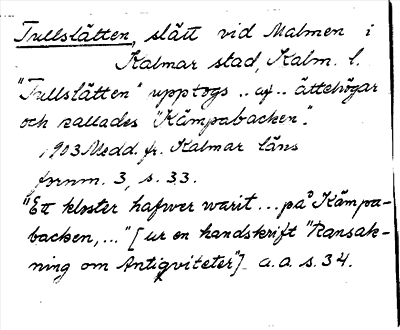 Tullslätten, slätt vid Malmen i
Kalmar stad, Kalm. l.
"Tullslätten" upptogs .. af .. ättehögar
och kallades "Kämpabacken".
1903 Medd. fr. Kalmar läns
fornm. 3, s. 33.
"Ett kloster hafwer warit ... på Kämpa-
backen, ..." [ur en handskrift "Ransak-
ning om Antiqviteter"] a.a. s. 34.